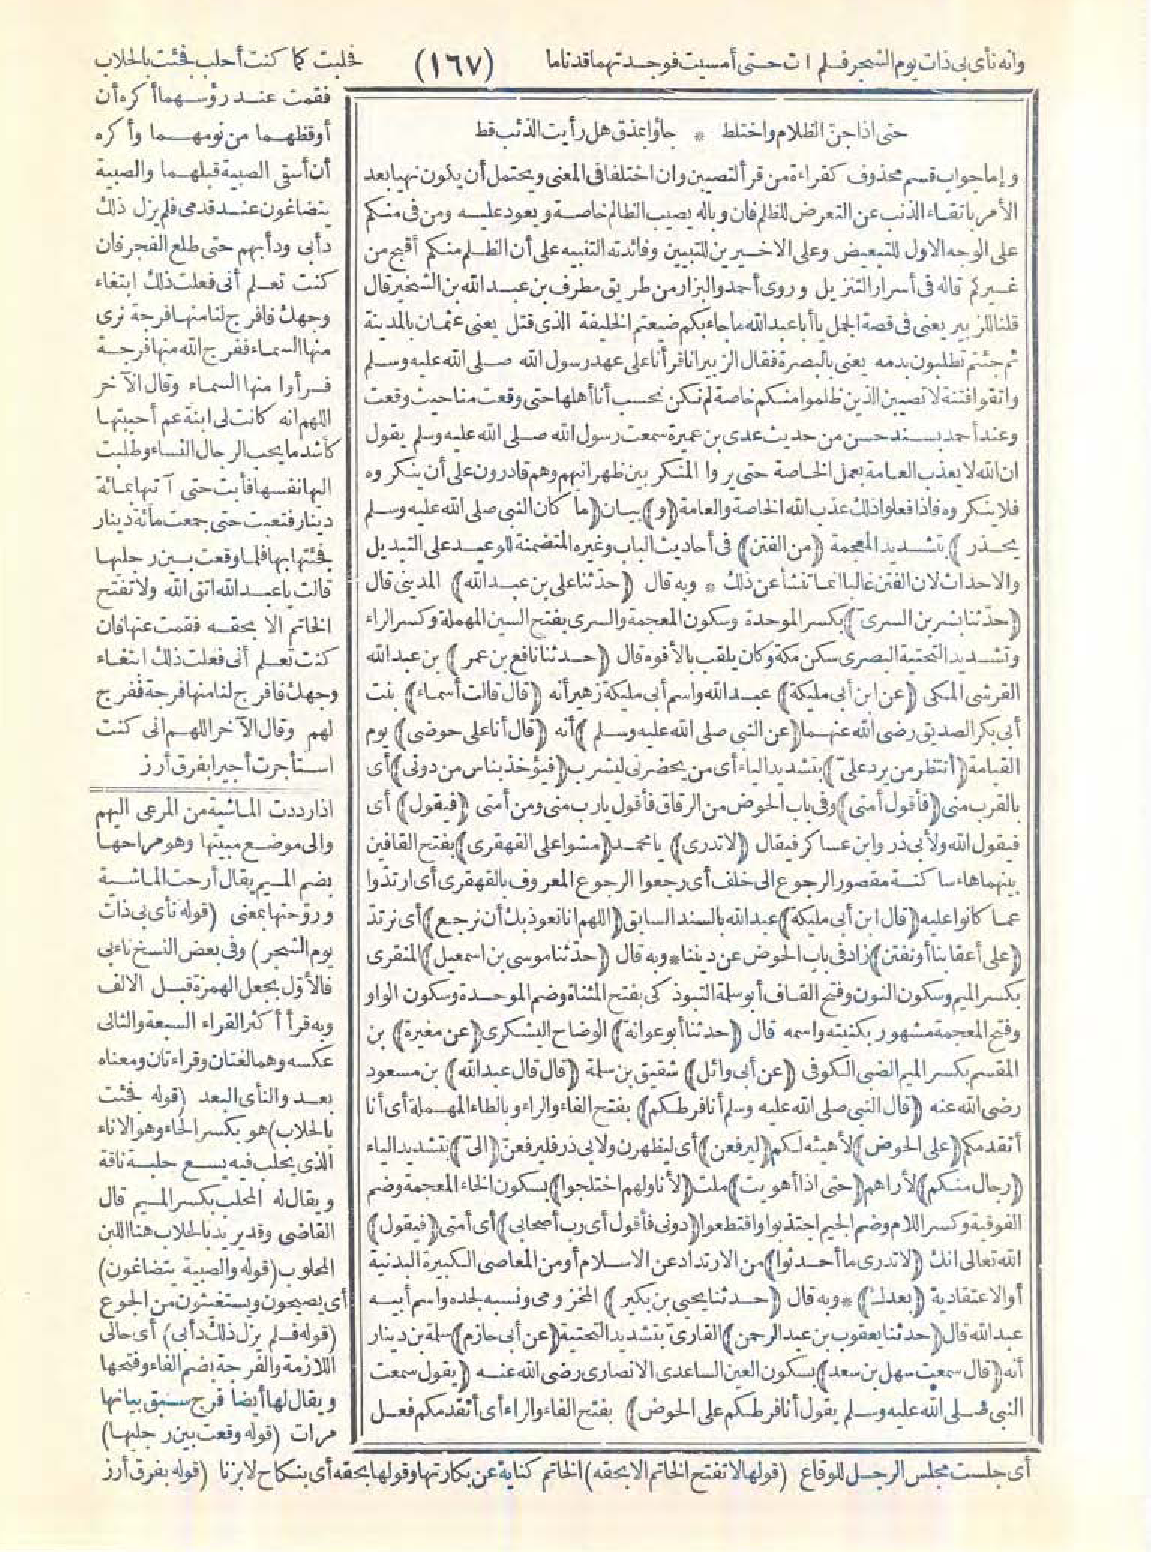 وانه نأى بى ذات يوم الشجر فلم ات حتى أمسيت فوجدتهما قد ناما
(١٦٧)
فحلبت كما كنت أحلب فجئت بالحلاب
فقمت عند رؤسهما أكره أن
أوقظهما من نومهما وأكره
أن أسقى الصبية قبلهما والصبية
يتضاغون عند قدمى فلم يزل ذلك
دأبى ودأبهم حتى طلع الفجر فان
كنت تعلم أنى فعلت ذلك ابتغاء
وجهك فافرج لنا منها فرجة نرى
منها السماء ففرج الله منها فرجة
فرأوا منها السماء وقال الآخر
اللهم انه كانت لى ابنة عم أحببتها
كأشد ما يحب الرجال النساء وطلبت
اليها نفسها فأبت حتى آتيها بمائة
دينار فتعبت حتى جمعت مائة دينار
فجئتها بها فلما وقعت بين رجليها
قالت يا عبد الله اتق الله ولا تفتح
الخاتم الا بحقه فقمت عنها فان
كنت تعلم أنى فعلت ذلك ابتغاء
وجهك فافرج لنا منها فرجة ففرج
لهم وقال الآخر اللهم انى كنت
استأجرت أجيرا بفرق أرز
حتى اذا جن الظلام واختلط * جاؤا بمذق هل رأيت الذئب قط
واما جواب قسم محذوف كقراءة من قرأ لتصيبن وان اختلفا فى المعنى ويحتمل أن يكون نهيا بعد
الأمر باتقاء الذنب عن التعرض للظلم فان وباله يصيب الظالم خاصة ويعود عليه ومن فى منكم
على الوجه الاول للتبعيض وعلى الاخيرين للتبيين وفائدته التنبيه على أن الظلم منكم أقبح من
غيركم قاله فى أسرار التنزيل وروى أحمد والبزار من طريق مطرف بن عبد الله بن الشخير قال
قلنا للزبير يعنى فى قصة الجمل يا أبا عبد الله ما جاء بكم ضيعتم الخليفة الذى قتل يعنى عثمان بالمدينة
ثم جئتم تطلبون بدمه يعنى بالبصرة فقال الزبير انا قرأنا على عهد رسول الله صلى الله عليه وسلم
واتقوا فتنة لا تصيبن الذين ظلموا منكم خاصة لم نكن نحسب أنا أهلها حتى وقعت منا حيث وقعت
وعند أحمد بسند حسن من حديث عدى بن عميرة سمعت رسول الله صلى الله عليه وسلم يقول
ان الله لا يعذب العامة بعمل الخاصة حتى يروا المنكر بين ظهرانيهم وهم قادرون على أن ينكروه
فلا ينكروه فاذا فعلوا ذلك عذب الله الخاصة والعامة (و) بيان (ما كان النبى صلى الله عليه وسلم
يحذر) بتشديد المعجمة (من الفتن) فى أحاديث الباب وغيره المتضمنة للوعيد على التبديل
والاحداث لان الفتن غالبا انما تنشأ عن ذلك * وبه قال (حدثنا على بن عبد الله) المدينى قال
(حدثنا بشر بن السرى) بكسر الموحدة وسكون المعجمة والسرى بفتح السين المهملة وكسر الراء
وتشديد التحتية البصرى سكن مكة وكان يلقب بالأفوه قال (حدثنا نافع بن عمر) بن عبد الله
القرشى المكى (عن ابن أبى مليكة) عبد الله واسم أبى مليكة زهير أنه (قال قالت أسماء) بنت
أبى بكر الصديق رضى الله عنهما (عن النبى صلى الله عليه وسلم) أنه (قال أنا على حوضى) يوم
القيامة (أنتظر من يرد على) بتشديد الياء أى من يحضرنى ليشرب (فيؤخذ بناس من دونى) أى
بالقرب منى (فأقول أمتى) وفى باب الحوض من الرقاق فأقول يارب منى ومن أمتى (فيقول) أى
فيقول الله ولأبى ذر وابن عساكر فيقال (لا تدرى) يا محمد (مشوا على القهقرى) بفتح القافين
بينهما هاء ساكنة مقصور الرجوع الى خلف أى رجعوا الرجوع المعروف بالقهقرى أى ارتدوا
عما كانوا عليه (قال ابن أبى مليكة) عبد الله بالسند السابق (اللهم انا نعوذ بك أن نرجع) أى نرتد
(على أعقابنا أو نفتن) زاد فى باب الحوض عن ديننا * وبه قال (حدثنا موسى بن اسمعيل) المنقرى
بكسر الميم وسكون النون وفتح القاف أبو سلمة التبوذكى بفتح المثناة وضم الموحدة وسكون الواو
وفتح المعجمة مشهور بكنيته واسمه قال (حدثنا أبو عوانة) الوضاح اليشكرى (عن مغيرة) بن
المقسم بكسر الميم الضبى الكوفى (عن أبى وائل) شقيق بن سلمة (قال قال عبد الله) بن مسعود
رضى الله عنه (قال النبى صلى الله عليه وسلم أنا فرطكم) بفتح الفاء والراء وبالطاء المهملة أى أنا
أتقدمكم (على الحوض) لأهيئه لكم (ليرفعن) أى ليظهرن ولابى ذر فليرفعن (الى) بتشديد الياء
(رجال منكم) لأراهم (حتى اذا أهويت) ملت (لأناولهم اختلجوا) بسكون الخاء المعجمة وضم
الفوقية وكسر اللام وضم الجيم اجتذبوا واقتطعوا (دونى فأقول أى رب أصحابى) أى أمتى (فيقول)
الله تعالى انك (لا تدرى ما أحدثوا) من الارتداد عن الاسلام أو من المعاصى الكبيرة البدنية
أو الاعتقادية (بعدك) * وبه قال (حدثنا يحيى بن بكير) المخزومى ونسبه لجده واسم أبيه
عبد الله قال (حدثنا يعقوب بن عبد الرحمن) القارئ بتشديد التحتية (عن أبى حازم) سلمة بن دينار
أنه (قال سمعت سهل بن سعد) بسكون العين الساعدى الانصارى رضى الله عنه (يقول سمعت
النبى صلى الله عليه وسلم يقول أنا فرطكم على الحوض) بفتح الفاء والراء أى أتقدمكم فعل
اذا رددت الماشية من المرعى اليهم
والى موضع مبيتها وهو مراحها
بضم الميم يقال أرحت الماشية
وروحتها بمعنى (قوله نأى بى ذات
يوم الشجر) وفى بعض النسخ ناء بى
فالأول يجعل الهمزة قبل الالف
وبه قرأ أكثر القراء السبعة والثانى
عكسه وهما لغتان وقراءتان ومعناه
بعد والنأى البعد (قوله فجئت
بالحلاب) هو بكسر الحاء وهو الاناء
الذى يحلب فيه يسع حلبة ناقة
ويقال له المحلب بكسر الميم قال
القاضى وقد يريد بالحلاب هنا اللبن
المحلوب (قوله والصبية يتضاغون)
أى يصيحون ويستغيثون من الجوع
(قوله فلم يزل ذلك دأبى) أى حالى
اللازمة والفرجة بضم الفاء وفتحها
ويقال لها أيضا فرج سبق بيانها
مرات (قوله وقعت بين رجليها)
أى جلست مجلس الرجل للوقاع (قولها لا تفتح الخاتم الا بحقه) الخاتم كناية عن بكارتها وقولها بحقه أى بنكاح لا بزنا (قوله بفرق أرز